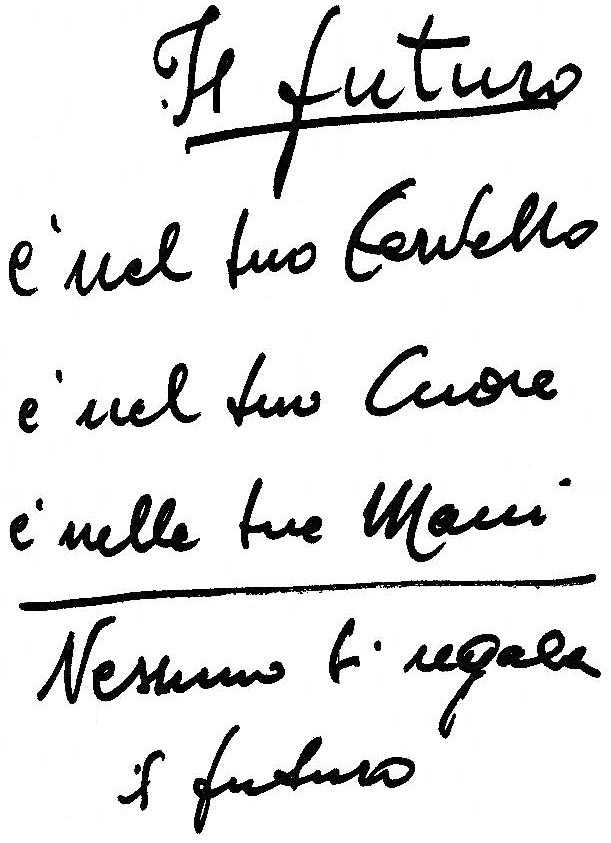 Il futuro
è nel tuo Cervello
è nel tuo Cuore
è nelle tue Mani
Nessuno ti regala
il futuro